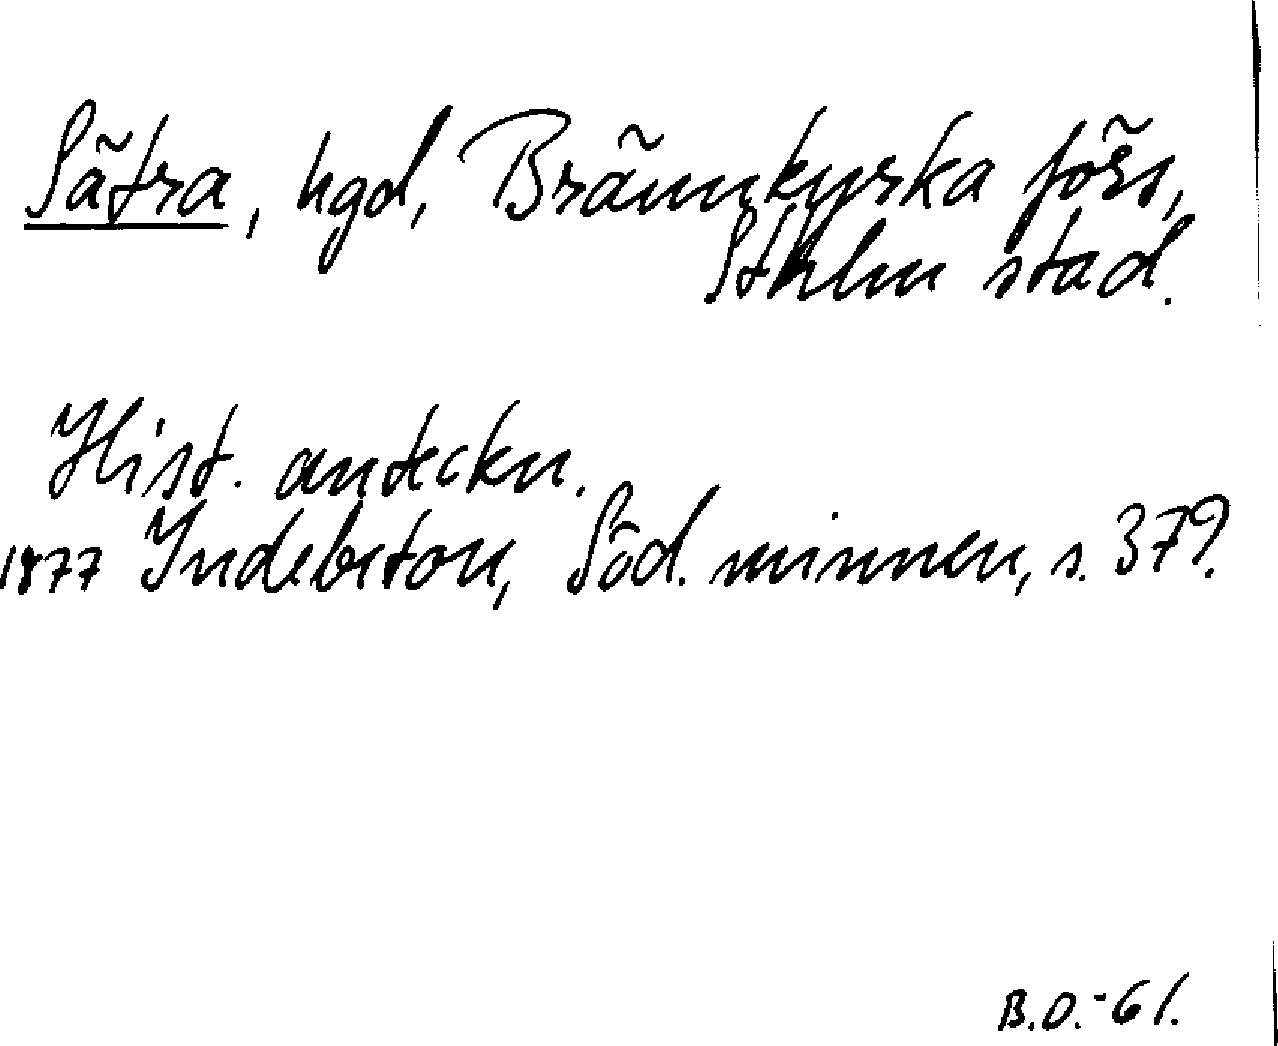 Sätra, hgd, Brännkyrka förs,
Sthlm stad.
Hist. anteckn.
1877 Indebetou, Söd. minnen, s. 379.
B.O.-61.